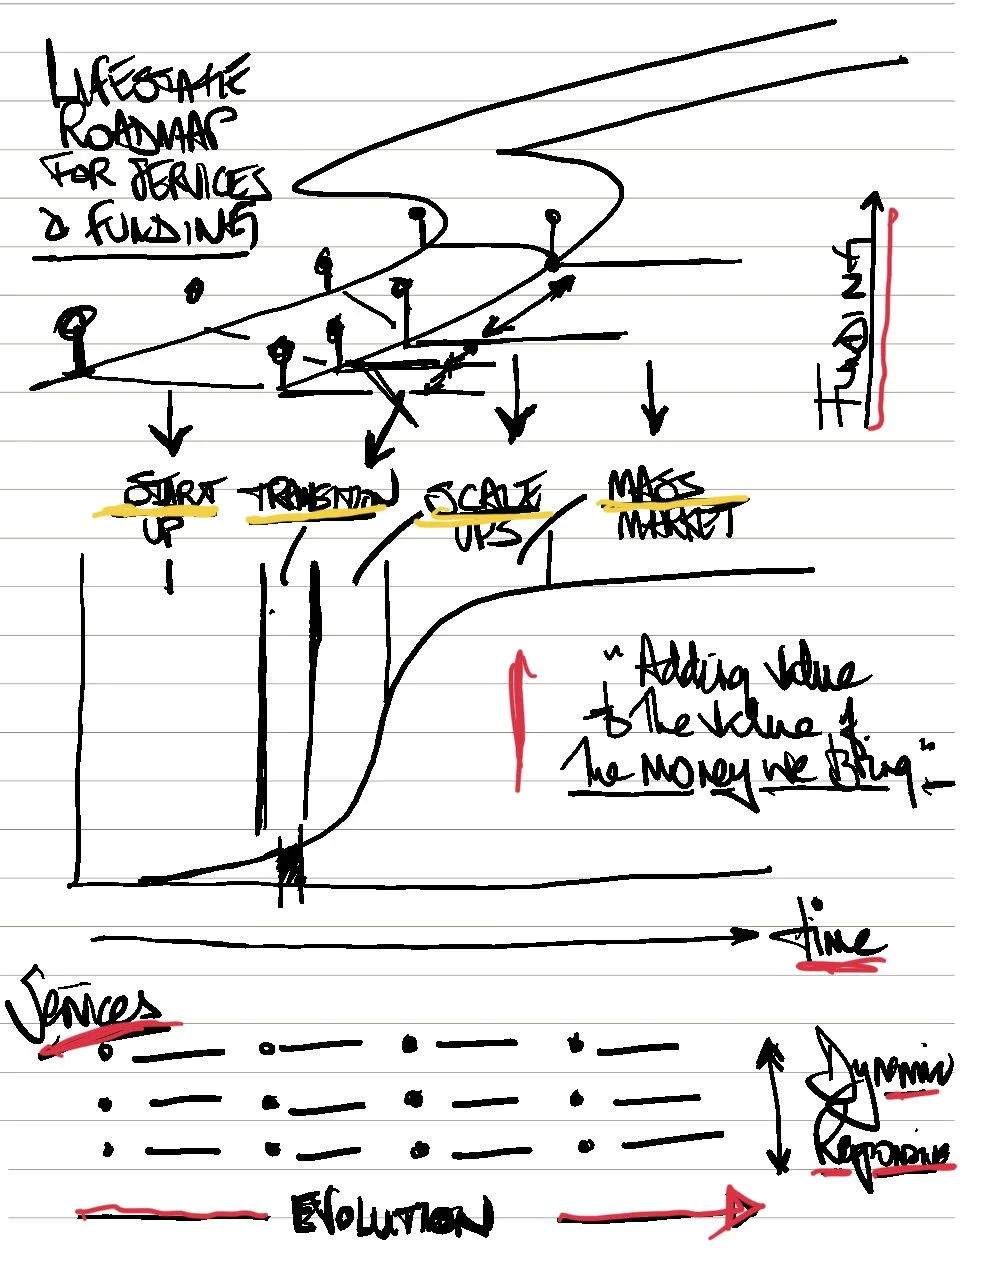 LIFESTAGE
ROADMAP
FOR SERVICES
& FUNDING
FUNDING
START
UP
TRANSITION
SCALE
UPS
MASS
MARKET
"Adding value
to the value of
the money we Bring"
time
Services
Dynamic
&
Responsive
EVOLUTION